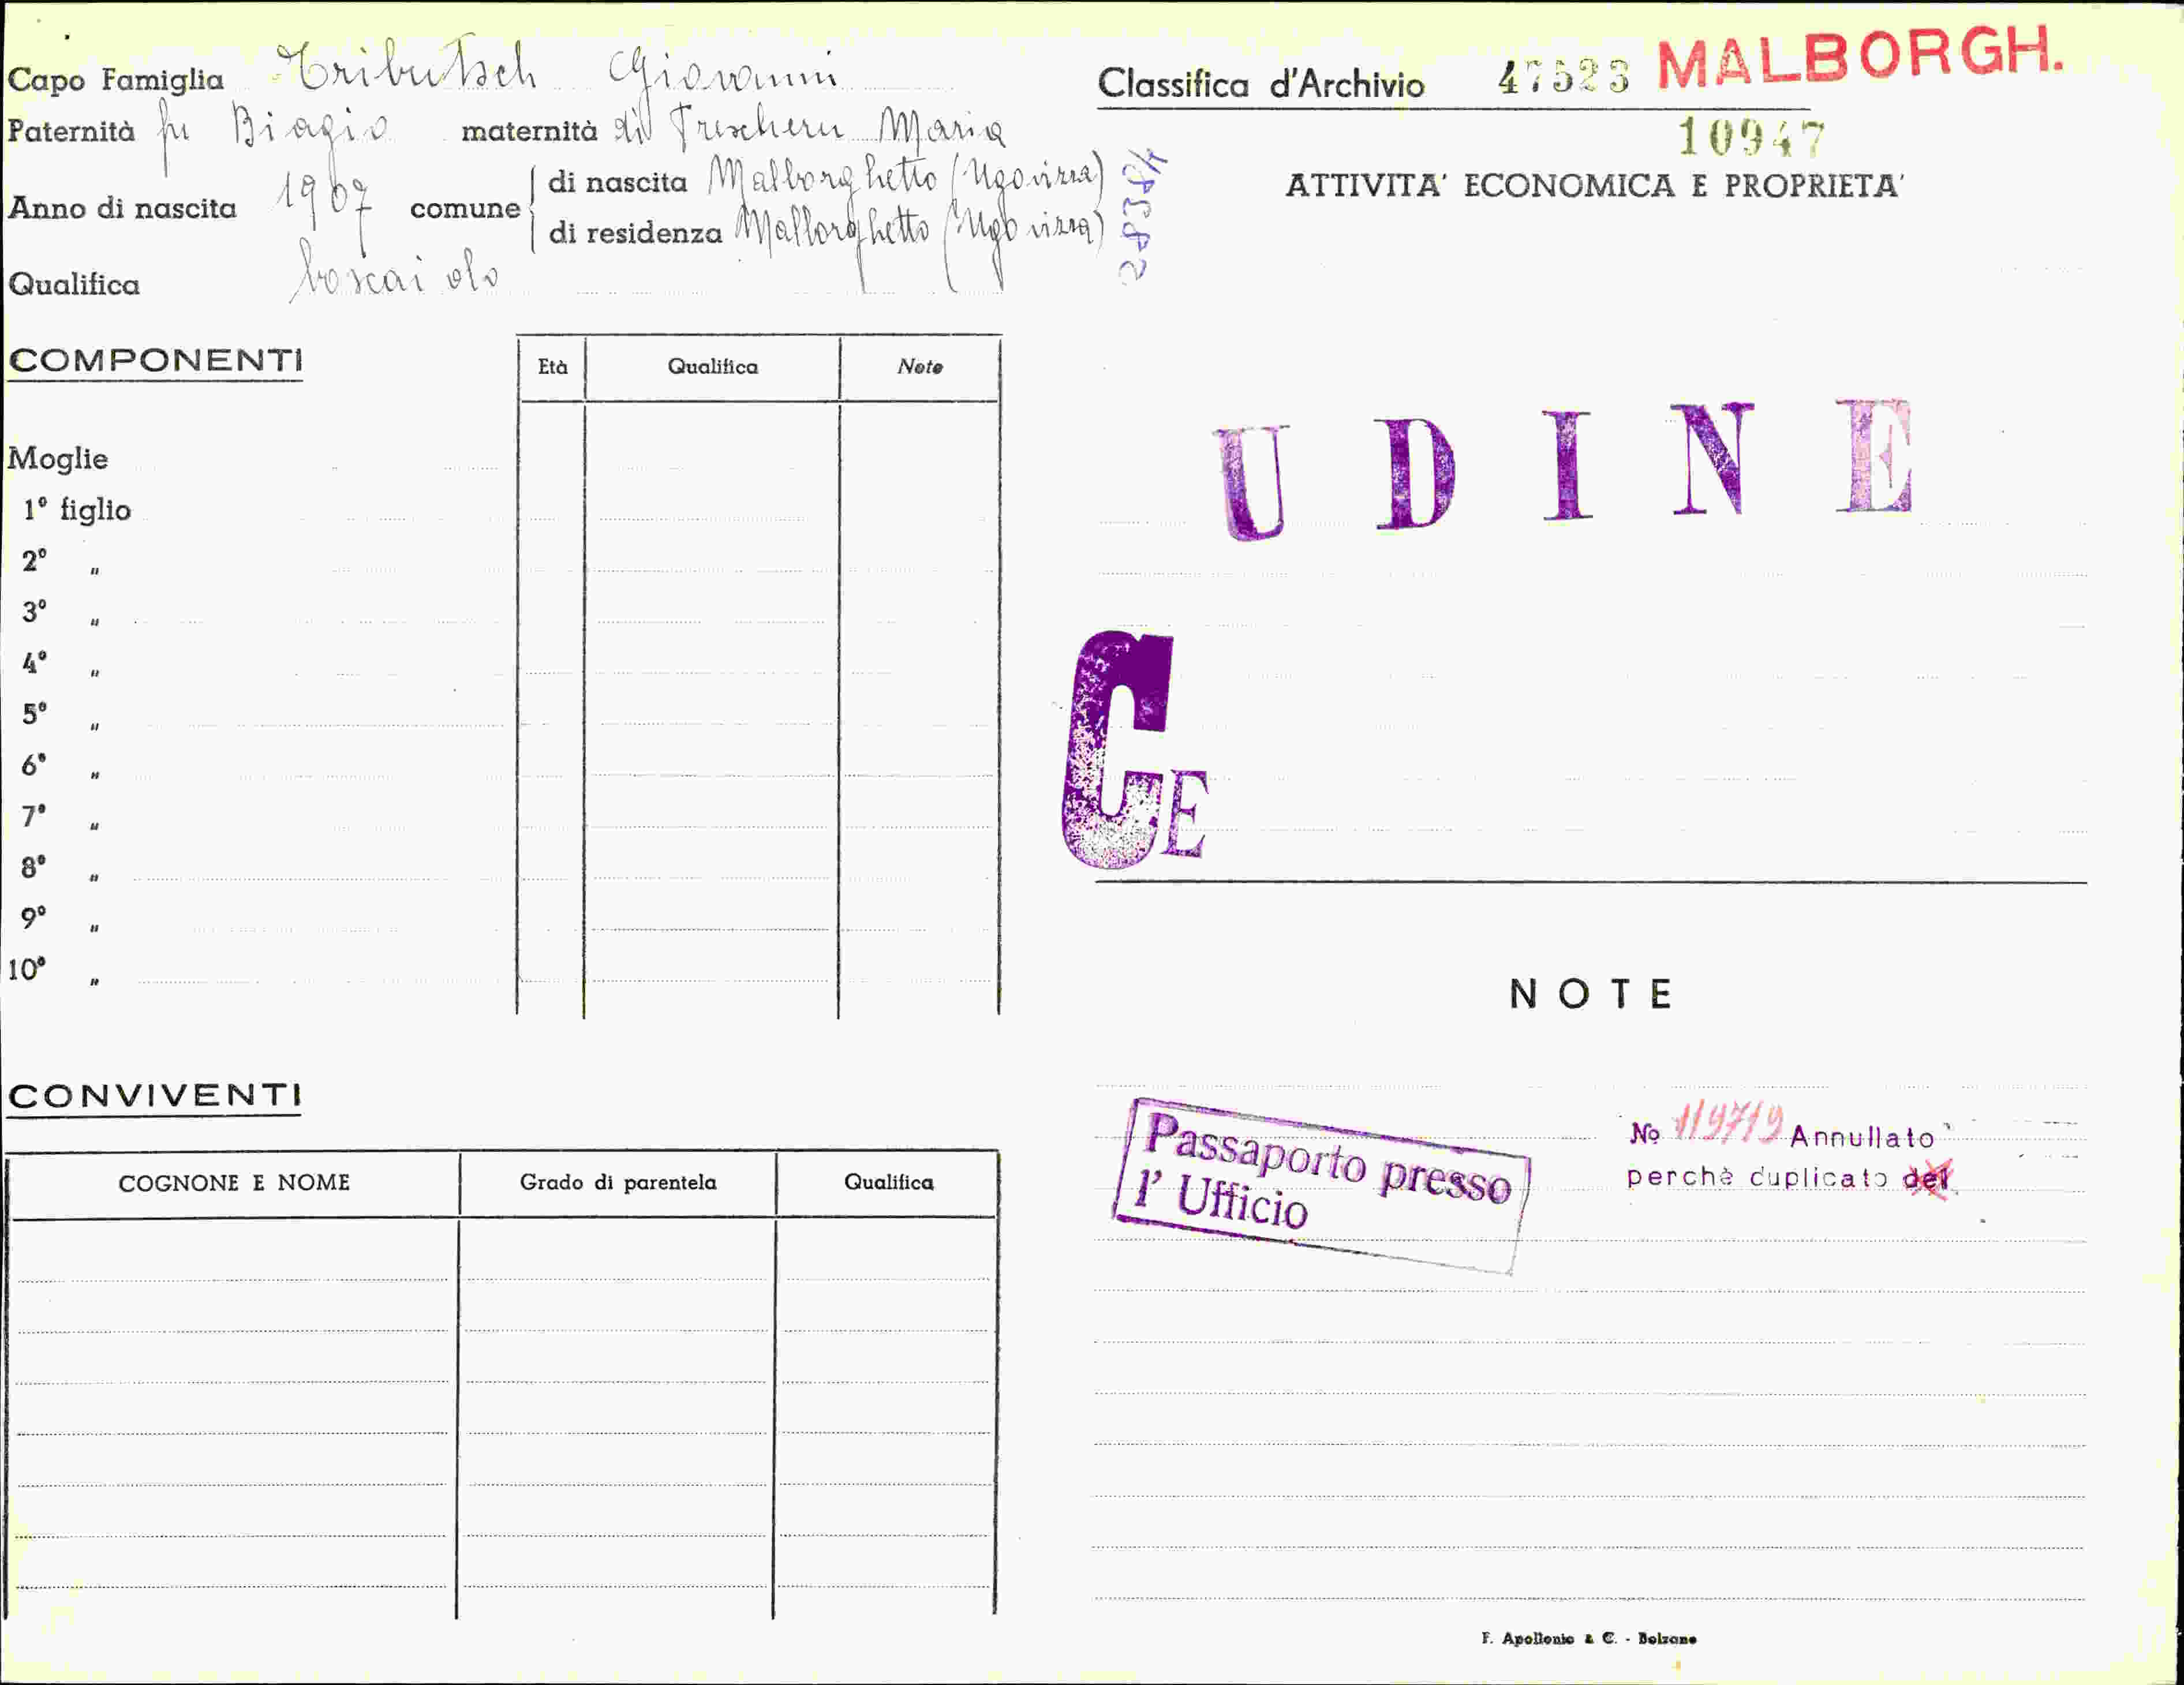 Capo Famiglia Tributsch Giovanni
Paternità fu Biagio maternità di Treschern Maria
Anno di nascita 1907 comune di nascita Malborghetto (Ugovizza)
di residenza Malborghetto (Ugovizza)
Qualifica boscaiolo
COMPONENTI
Età Qualifica Note
Moglie
1º figlio
2º "
3º "
4º "
5º "
6º "
7º "
8º "
9º "
10º "
CONVIVENTI
COGNONE E NOME Grado di parentela Qualifica
Classifica d'Archivio 47523 MALBORGH.
10947
ATTIVITA' ECONOMICA E PROPRIETA'
UDINE
CE
NOTE
Passaporto presso
l' Ufficio
Nº 119719 Annullato
perchè duplicato del
F. Apollonio & C. - Bolzano